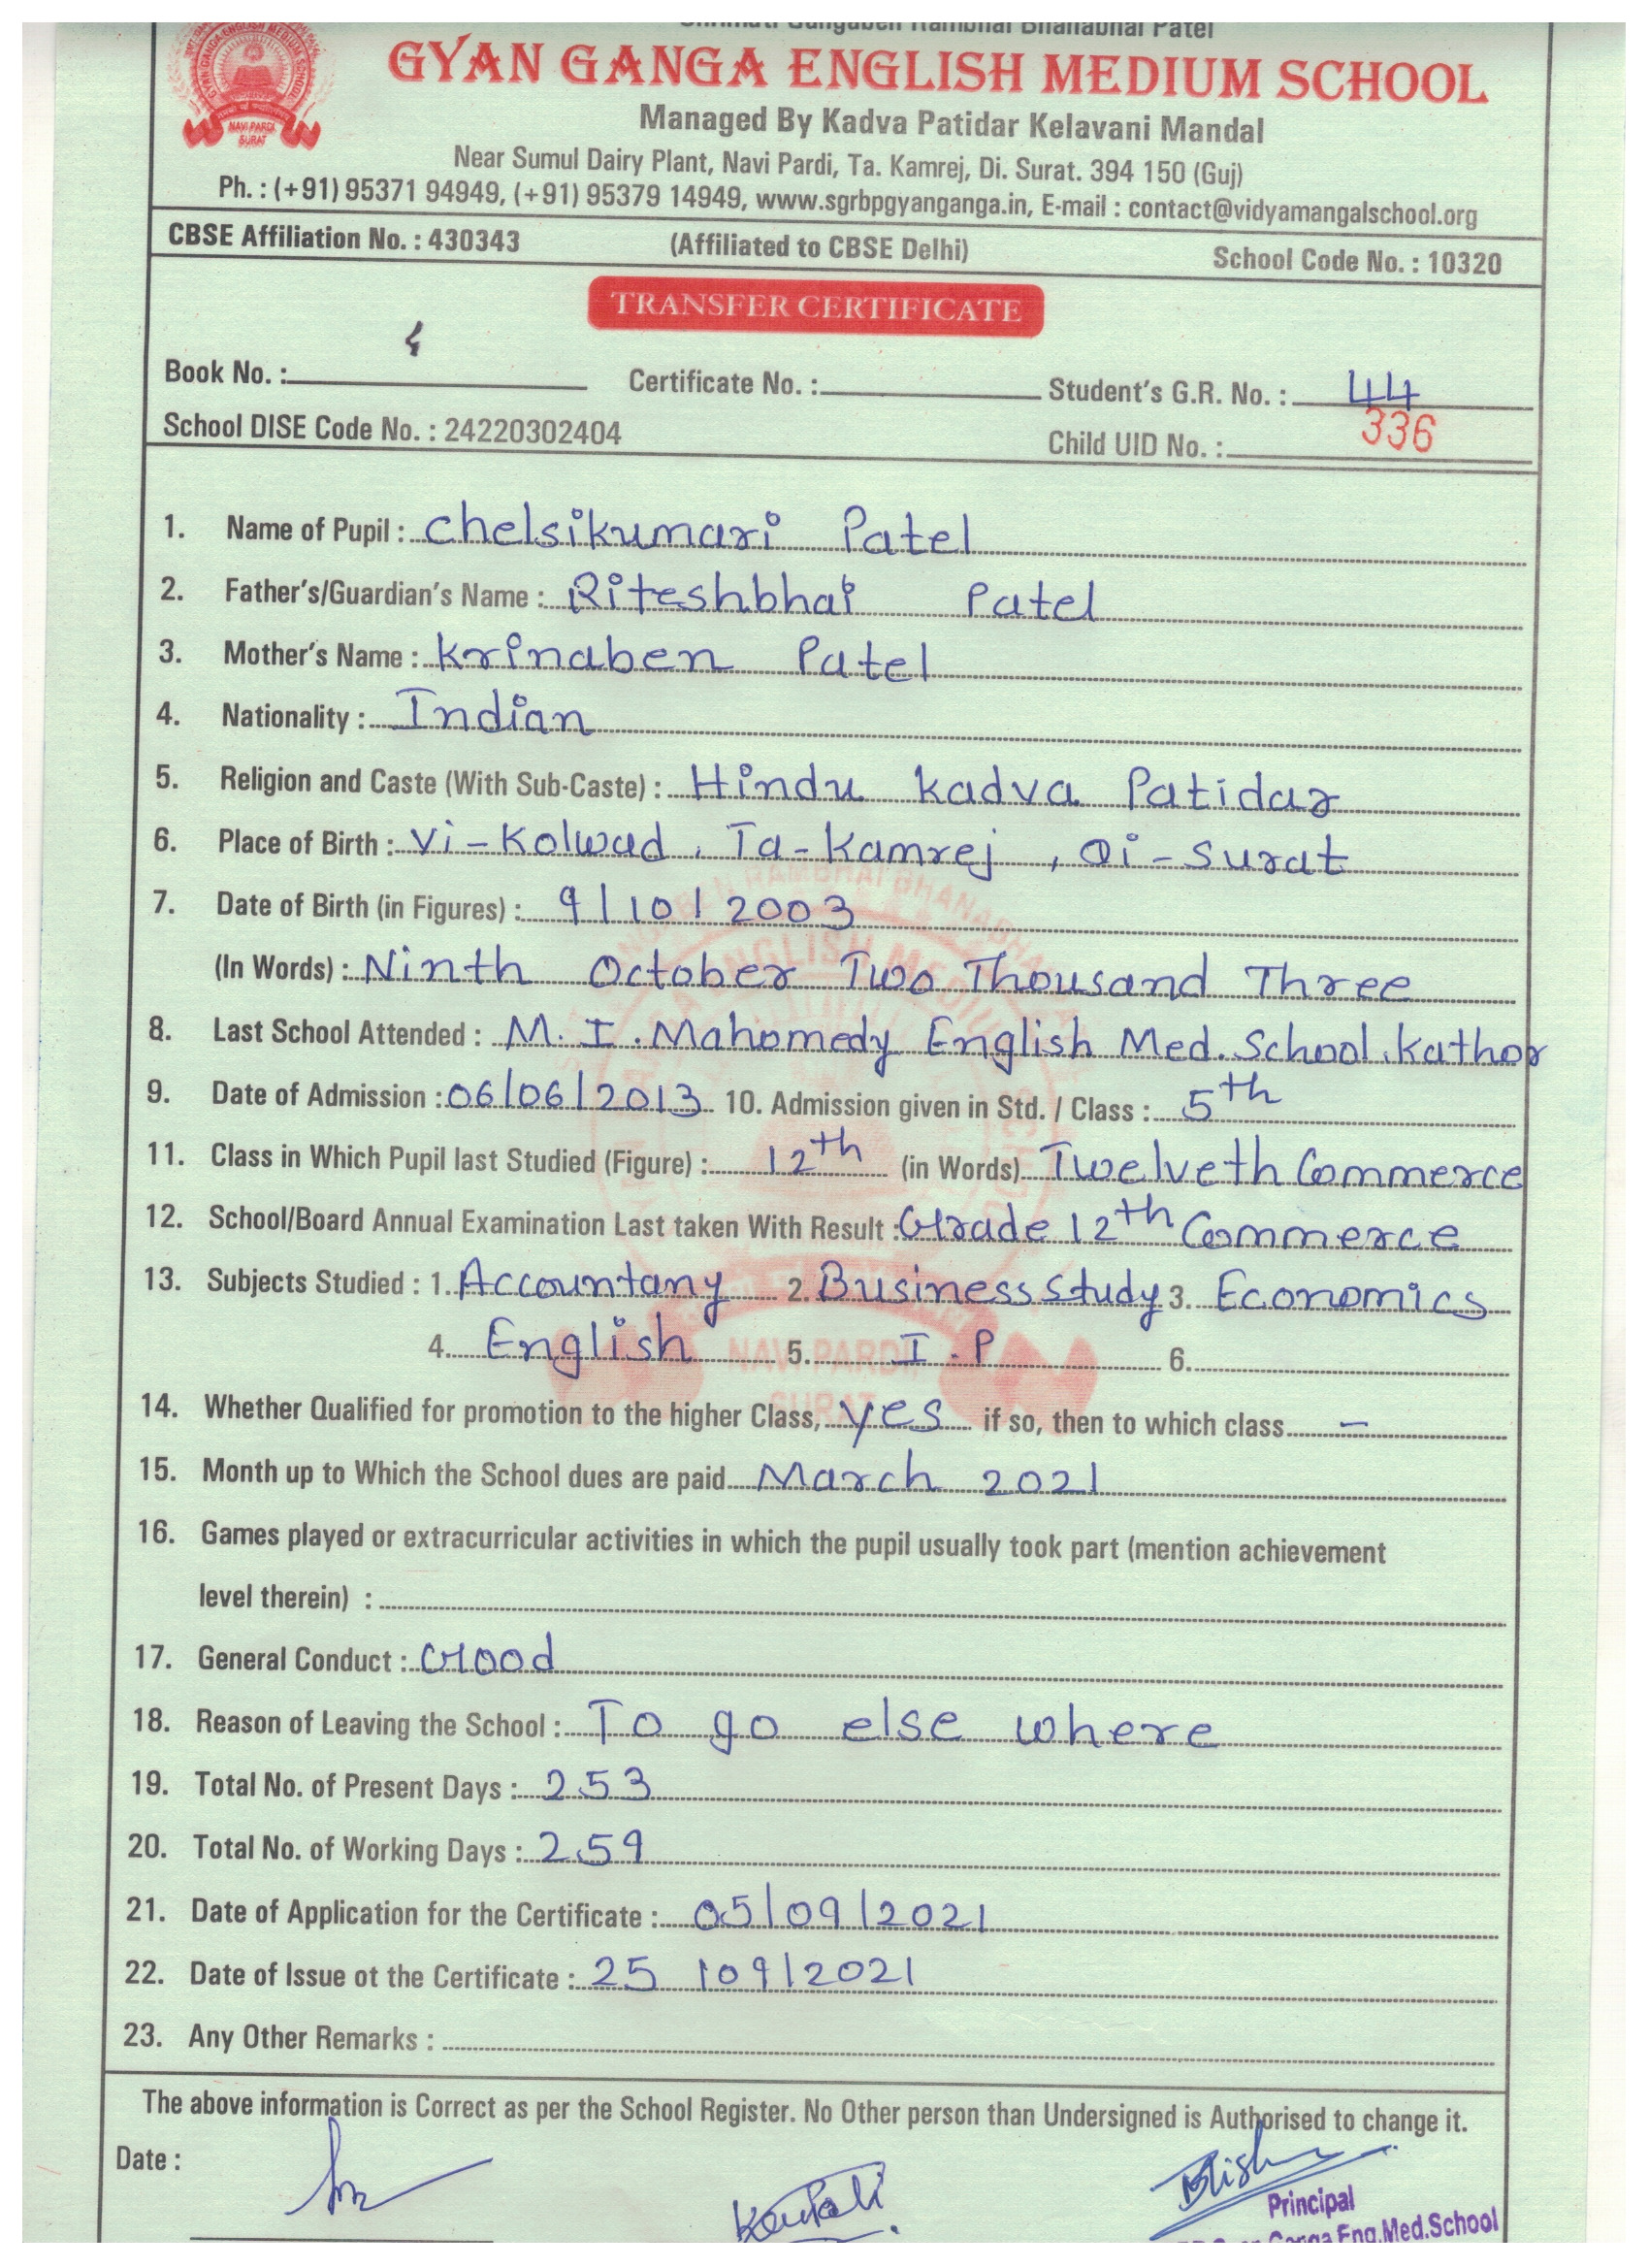 GYAN GANGA ENGLISH MEDIUM SCHOOL
NAVI PARDI
SURAT
Managed By Kadva Patidar Kelavani Mandal
Near Sumul Dairy Plant, Navi Pardi, Ta. Kamrej, Di. Surat. 394 150 (Guj)
Ph. : (+91) 95371 94949, (+91) 95379 14949, www.sgrbpgyanganga.in, E-mail : contact@vidyamangalschool.org
CBSE Affiliation No. : 430343 (Affiliated to CBSE Delhi) School Code No. : 10320
TRANSFER CERTIFICATE
Book No. : Certificate No. : Student's G.R. No. : 44
School DISE Code No. : 24220302404 Child UID No. : 336
1. Name of Pupil : Chelsikumari Patel
2. Father's/Guardian's Name : Riteshbhai Patel
3. Mother's Name : Krinaben Patel
4. Nationality : Indian
5. Religion and Caste (With Sub-Caste) : Hindu Kadva Patidar
6. Place of Birth : Vi - Kolwad, Ta - Kamrej, Di - Surat
7. Date of Birth (in Figures) : 9/10/2003
(In Words) : Ninth October Two Thousand Three
8. Last School Attended : M. I. Mahomedy English Med. School. Kathor
9. Date of Admission : 06/06/2013 10. Admission given in Std. / Class : 5th
11. Class in Which Pupil last Studied (Figure) : 12th (in Words) Twelveth Commerce
12. School/Board Annual Examination Last taken With Result : Grade 12th Commerce
13. Subjects Studied : 1. Accountany 2. Business Study 3. Economics
4. English 5. I.P 6.
14. Whether Qualified for promotion to the higher Class, yes if so, then to which class -
15. Month up to Which the School dues are paid March 2021
16. Games played or extracurricular activities in which the pupil usually took part (mention achievement
level therein) :
17. General Conduct : Good
18. Reason of Leaving the School : To go else where
19. Total No. of Present Days : 253
20. Total No. of Working Days : 259
21. Date of Application for the Certificate : 05/09/2021
22. Date of Issue ot the Certificate : 25/09/2021
23. Any Other Remarks :
The above information is Correct as per the School Register. No Other person than Undersigned is Authorised to change it.
Date :
Principal
Eng.Med.School